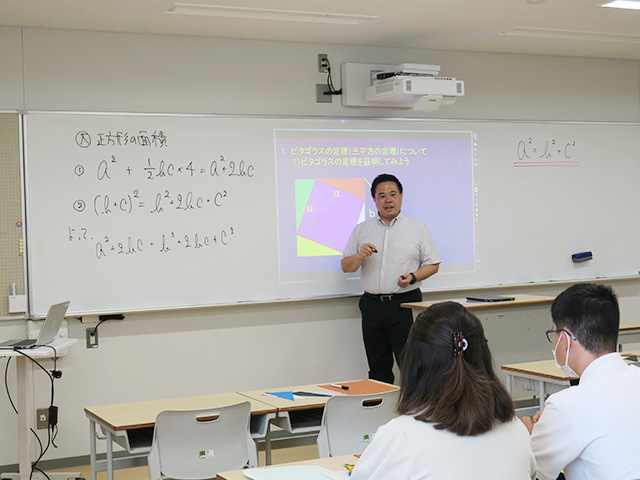 大 正方形の面積
① a² + 1/2bc×4 = a²+2bc
② (b+c)² = b²+2bc+c²
よって、
a²+2bc = b²+2bc+c²
1. ピタゴラスの定理(三平方の定理)について
1)ピタゴラスの定理を証明してみよう
a
a
b
a² = b²+c²